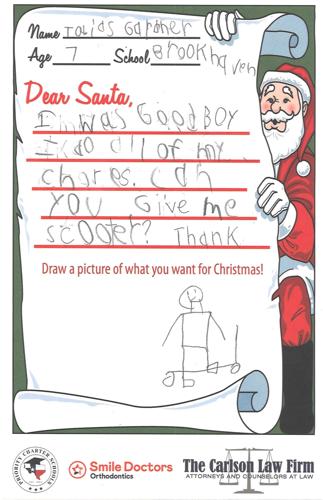 Name Isaias Gardner
Age 7 School Brookhaven
Dear Santa,
I was GOOD BOY
I do all of my
chores. can
YOU Give me
scooter? Thank
Draw a picture of what you want for Christmas!
PRIORITY CHARTER SCHOOLS
Smile Doctors
Orthodontics
The Carlson Law Firm
ATTORNEYS AND COUNSELORS AT LAW